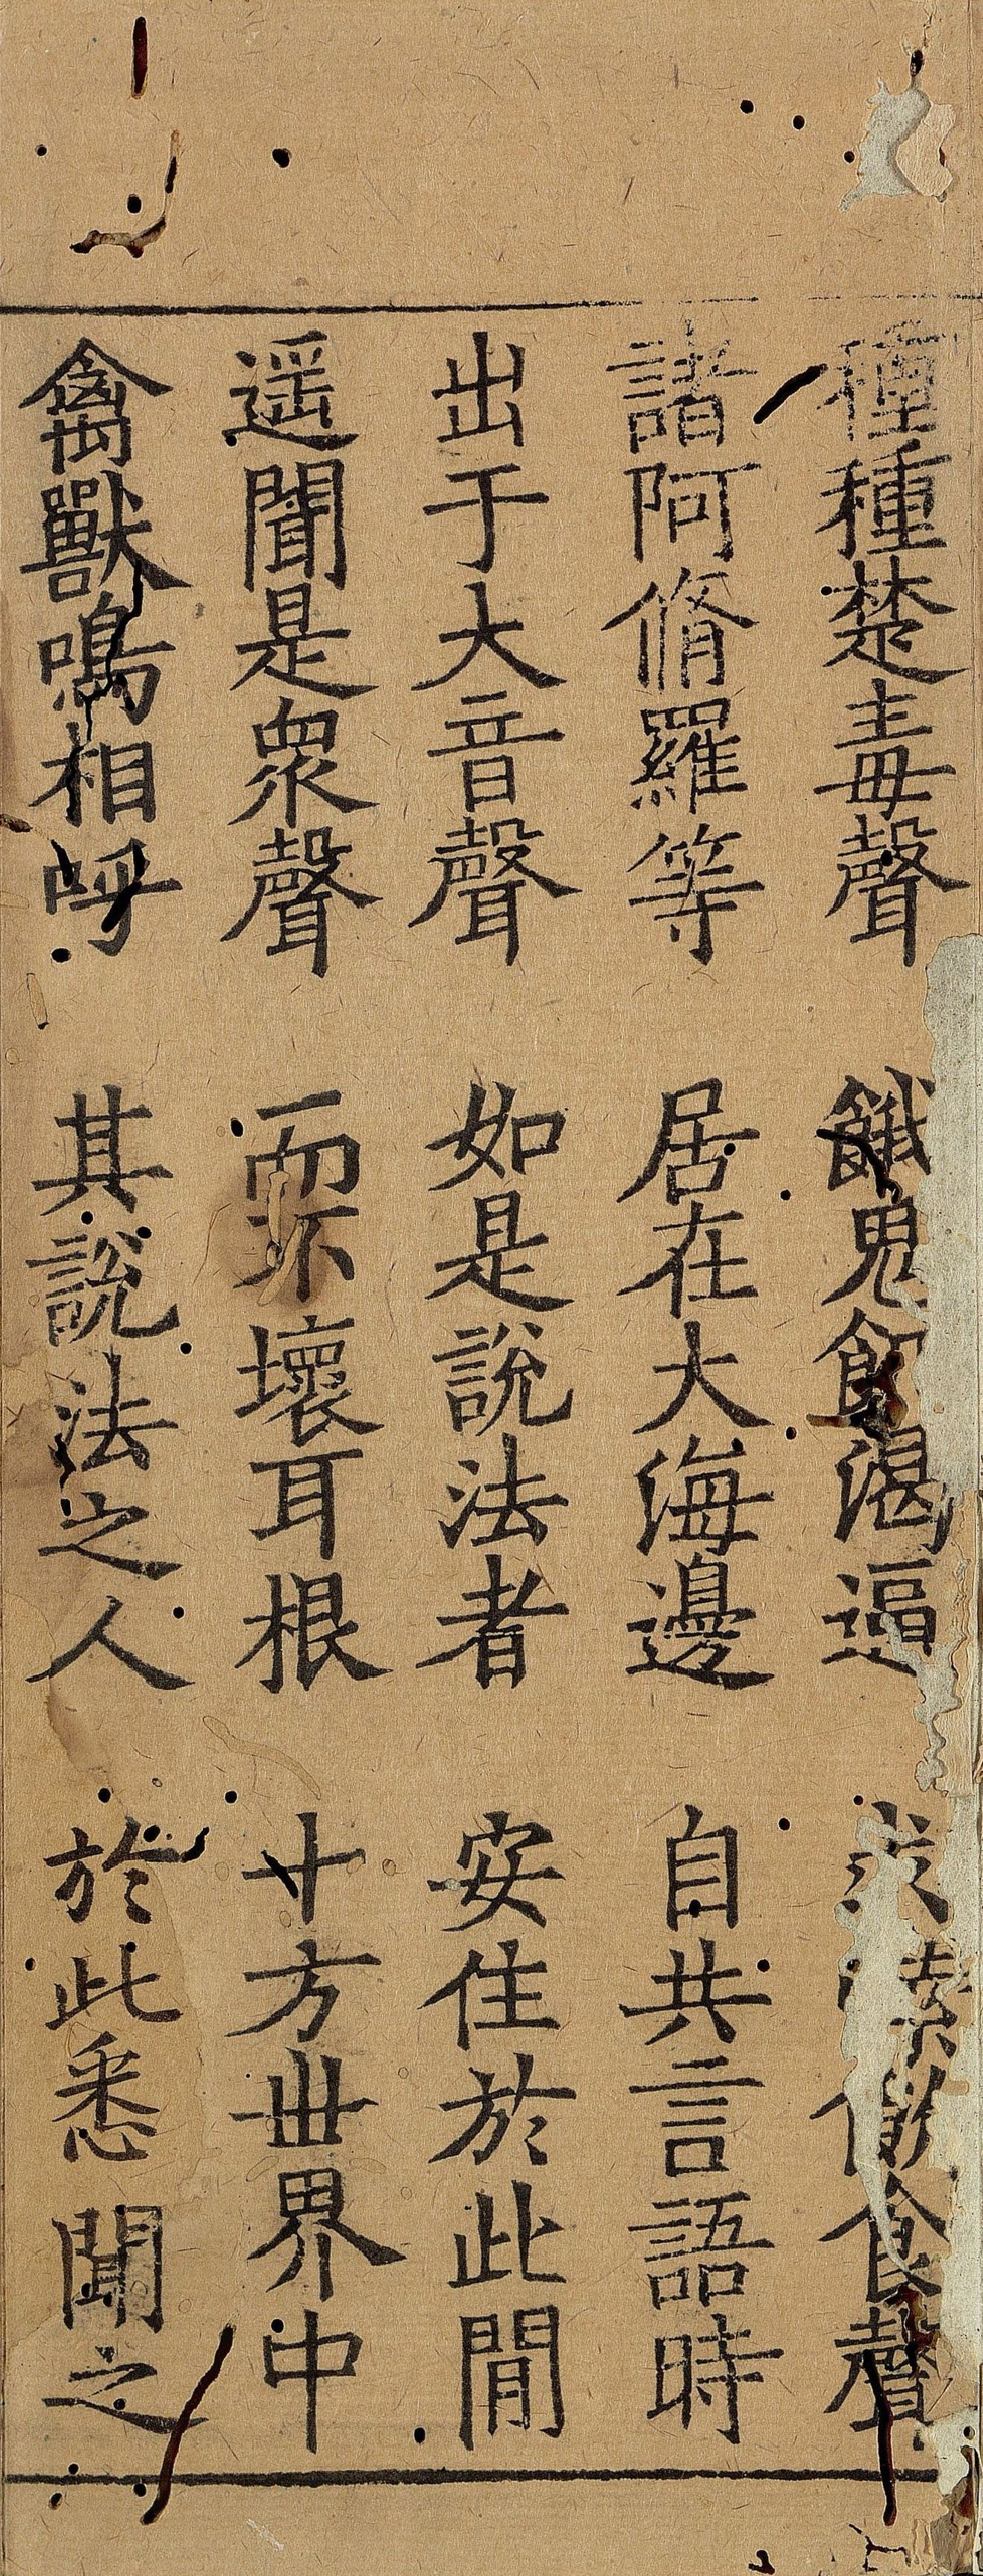 種種楚毒聲　餓鬼飢渴逼　求索飲食聲
諸阿脩羅等　居在大海邊　自共言語時
出于大音聲　如是說法者　安住於此閒
遥聞是衆聲　而不壞耳根　十方世界中
禽獸鳴相呼　其說法之人　於此悉聞之